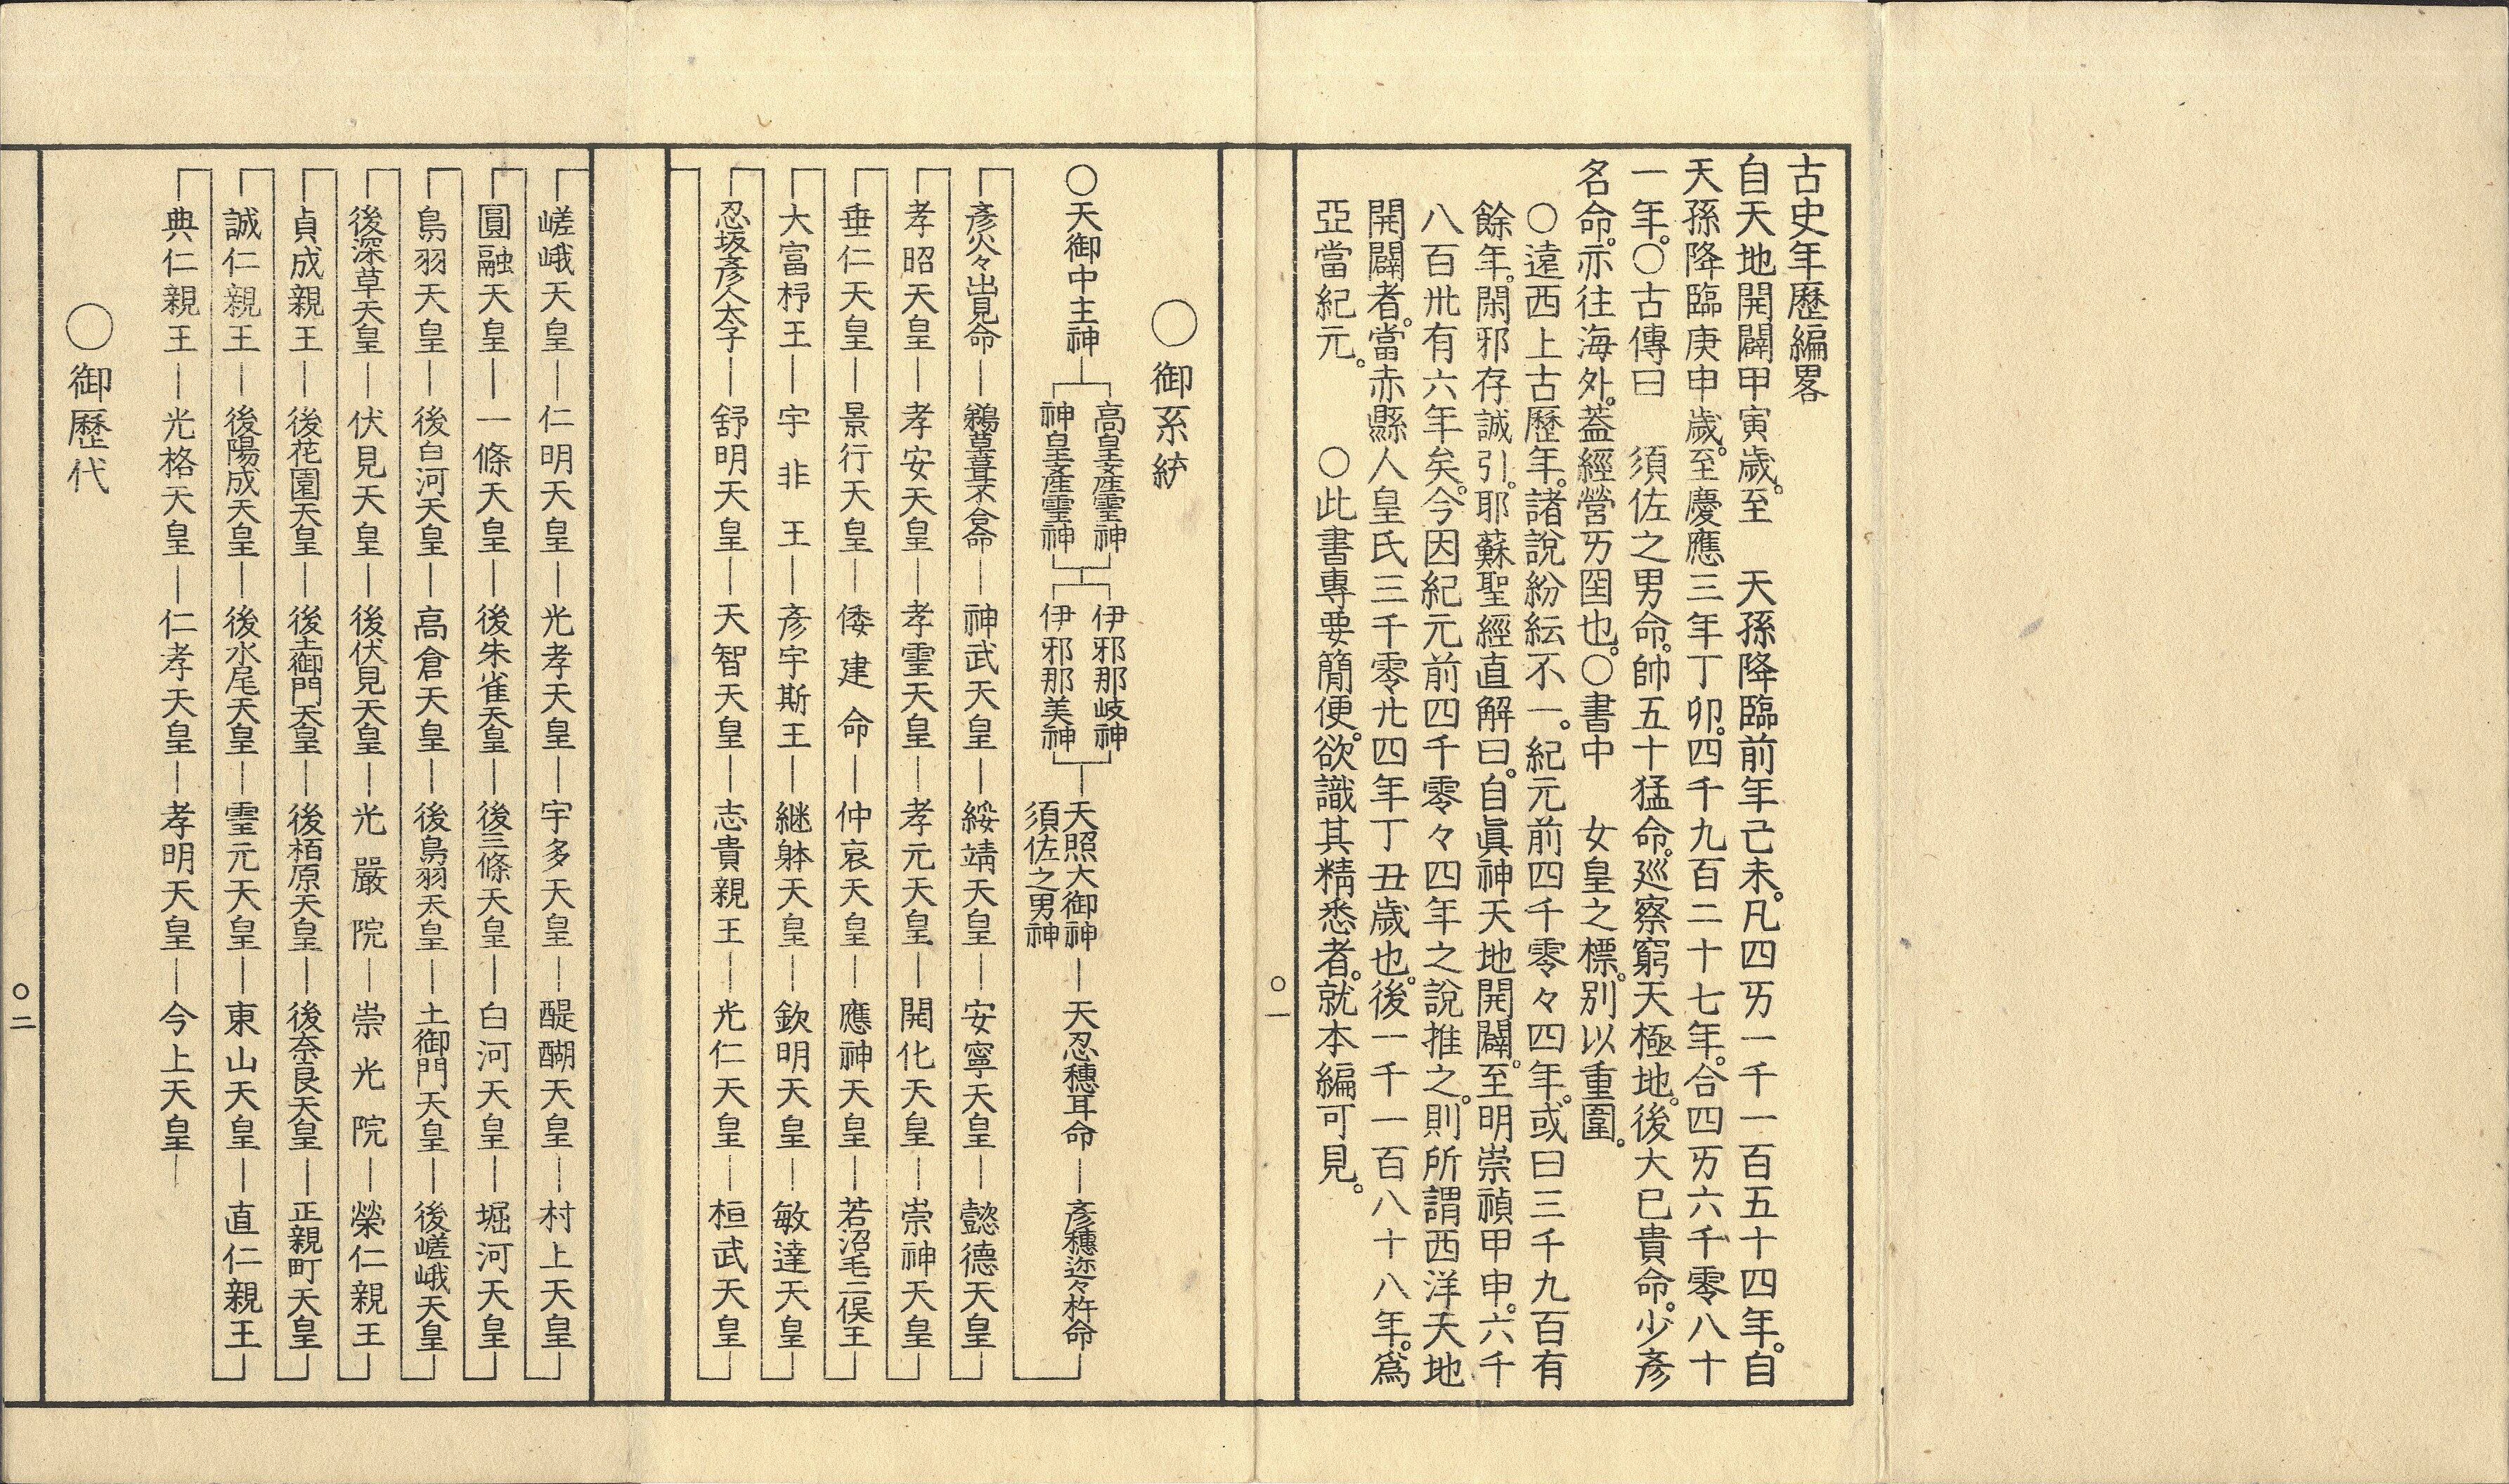 古史年歷編畧
自天地開闢甲寅歲。至　天孫降臨前年己未。凡四万一千一百五十四年。自
天孫降臨庚申歲。至慶應三年丁卯。四千九百二十七年。合四万六千零八十
一年。〇古傳曰　須佐之男命。帥五十猛命。巡察窮天極地。後大已貴命。少彥
名命。亦往海外。蓋經營万囶也。〇書中　女皇之標。別以重圍。
〇遠西上古歷年。諸說紛紜不一。紀元前四千零々四年。或曰三千九百有
餘年。閑邪存誠引。耶蘇聖經直解曰。自眞神天地開闢。至明崇禎甲申。六千
八百卅有六年矣。今因紀元前四千零々四年之說推之。則所謂西洋天地
開闢者。當赤縣人皇氏三千零廿四年丁丑歲也。後一千一百八十八年。爲
亞當紀元。　〇此書專要簡便。欲識其精悉者。就本編可見。
〇一
〇御系統
〇天御中主神
高皇產靈神
神皇產靈神
伊邪那岐神
伊邪那美神
天照大御神
須佐之男神
天忍穗耳命
彥穗邇々杵命
彥火々出見命―鵜葺葺不合命―神武天皇―綏靖天皇―安寧天皇―懿德天皇
孝昭天皇―孝安天皇―孝靈天皇―孝元天皇―開化天皇―崇神天皇
垂仁天皇―景行天皇―倭建命―仲哀天皇―應神天皇―若沼毛二俣王
大富杼王―宇非王―彥宇斯王―継躰天皇―欽明天皇―敏達天皇
忍坂彥人太子―舒明天皇―天智天皇―志貴親王―光仁天皇―桓武天皇
嵯峨天皇―仁明天皇―光孝天皇―宇多天皇―醍醐天皇―村上天皇
圓融天皇―一條天皇―後朱雀天皇―後三條天皇―白河天皇―堀河天皇
鳥羽天皇―後白河天皇―高倉天皇―後鳥羽天皇―土御門天皇―後嵯峨天皇
後深草天皇―伏見天皇―後伏見天皇―光嚴院―崇光院―榮仁親王
貞成親王―後花園天皇―後土御門天皇―後栢原天皇―後奈良天皇―正親町天皇
誠仁親王―後陽成天皇―後水尾天皇―靈元天皇―東山天皇―直仁親王
典仁親王―光格天皇―仁孝天皇―孝明天皇―今上天皇
〇御歷代
〇二